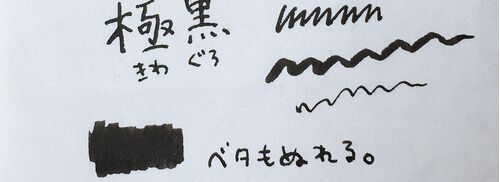 極黒
きわぐろ
ベタもぬれる。